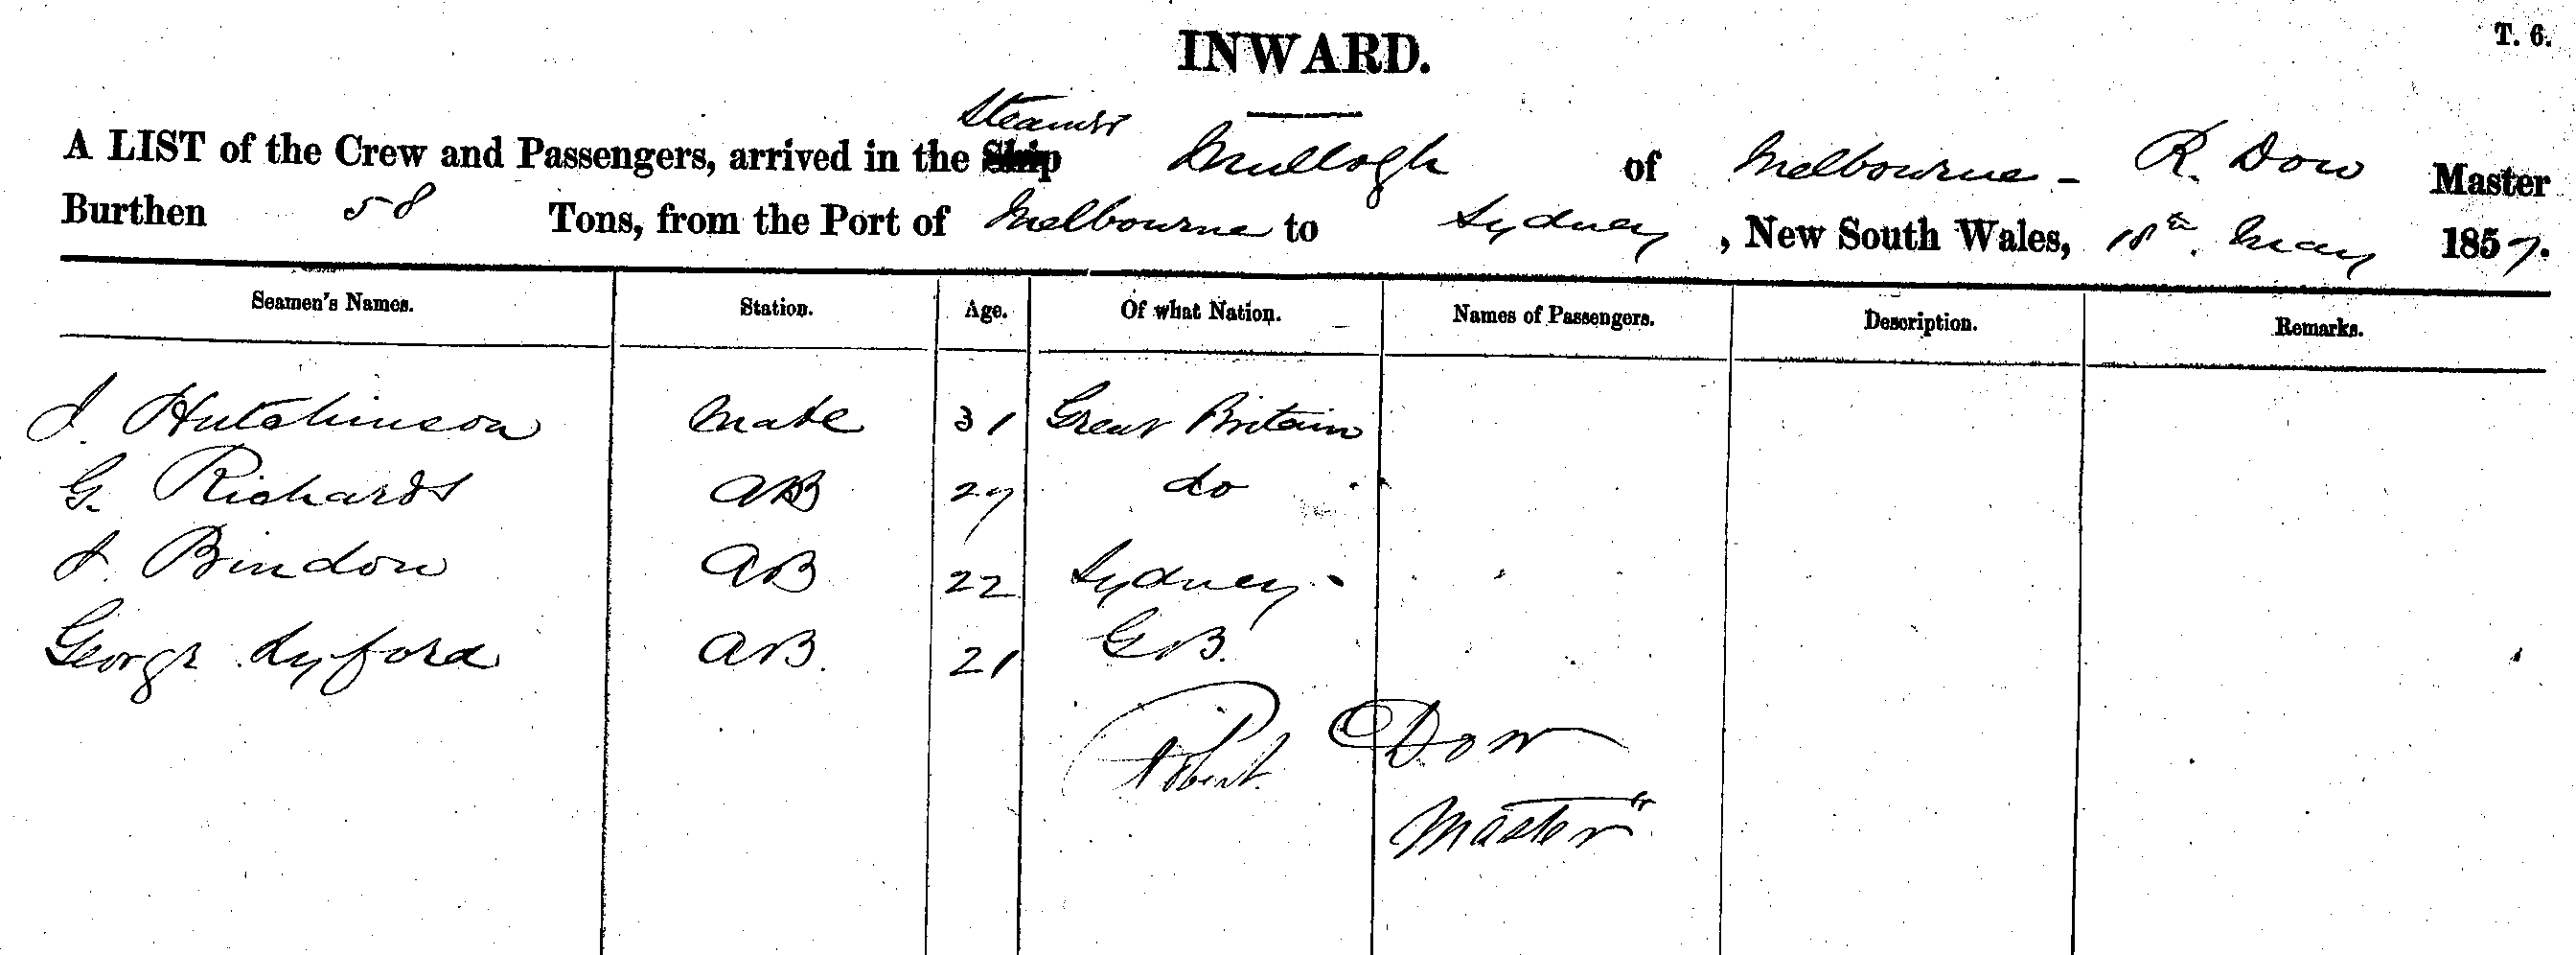 T. 6.
INWARD.
Steamer
A LIST of the Crew and Passengers, arrived in the Ship Mullogh of Melbourne - R. Dow Master
Burthen 58 Tons, from the Port of Melbourne to Sydney, New South Wales, 18th May 1857.
Seamen's Names. Station. Age. Of what Nation. Names of Passengers. Description. Remarks.
J. Hutchinson Mate 31 Great Britain
G. Richards AB 27 do
J. Bindon AB 22 Sydney
George Lyford AB. 21 GB.
Robert Dow
Master